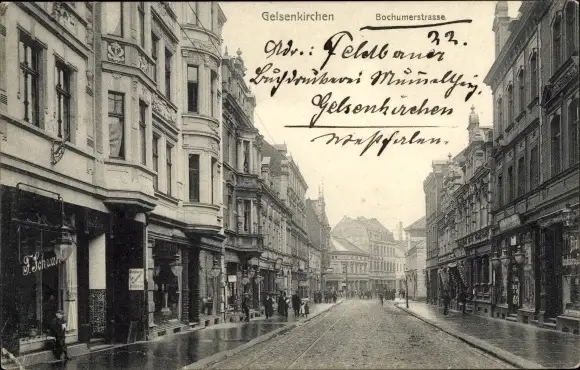 Gelsenkirchen Bochumerstrasse.
Adr.: Feldbauer 32.
Buchdruckerei
Gelsenkirchen
Westfalen.